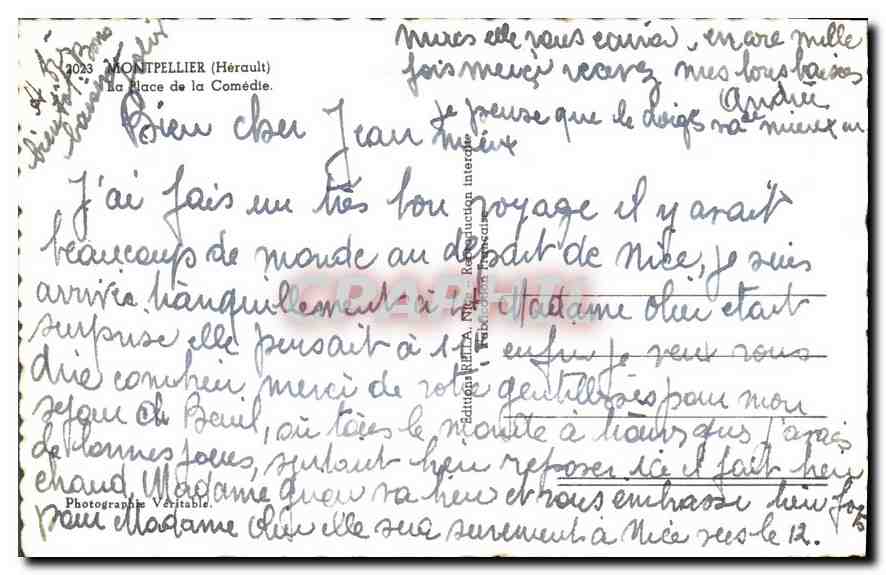 2023 MONTPELLIER (Hérault)
La Place de la Comédie.
Bien cher Jean
J'ai fais un très bon voyage il y avait
beaucoup de monde au départ de Nice, je suis
arrivée tranquillement à Madame était
surprise elle pensait à 11 enfin je veux vous
dire combien merci de votre gentillesse pour mon
séjour de Beuil, où le monde à j'avais
de bonnes joues, surtout bien reposer ici il fait bien
chaud, Madame va bien et vous embrasse bien fort
pour Madame elle sera surement à Nice vers le 12.
je pense que le doigt va mieux en
mieux
elle vous, encore mille
fois merci recevez mes bons baisers
Andrée
à bientôt Bons
baisers
Photographie Véritable.
Editions RELLA, Nice - Reproduction interdite
Fabrication Française
CPAPHIL